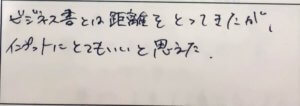 ビジネス書とは距離をとってきたが、
インプットにとてもいいと思えた.